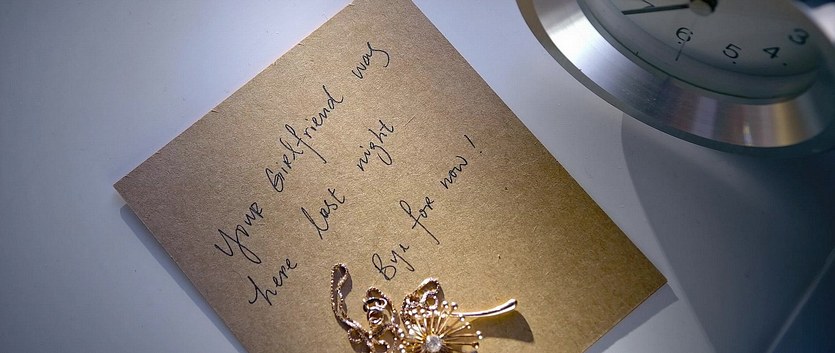 Your Girlfriend was
here last night
Bye for now!
6 5 4 3